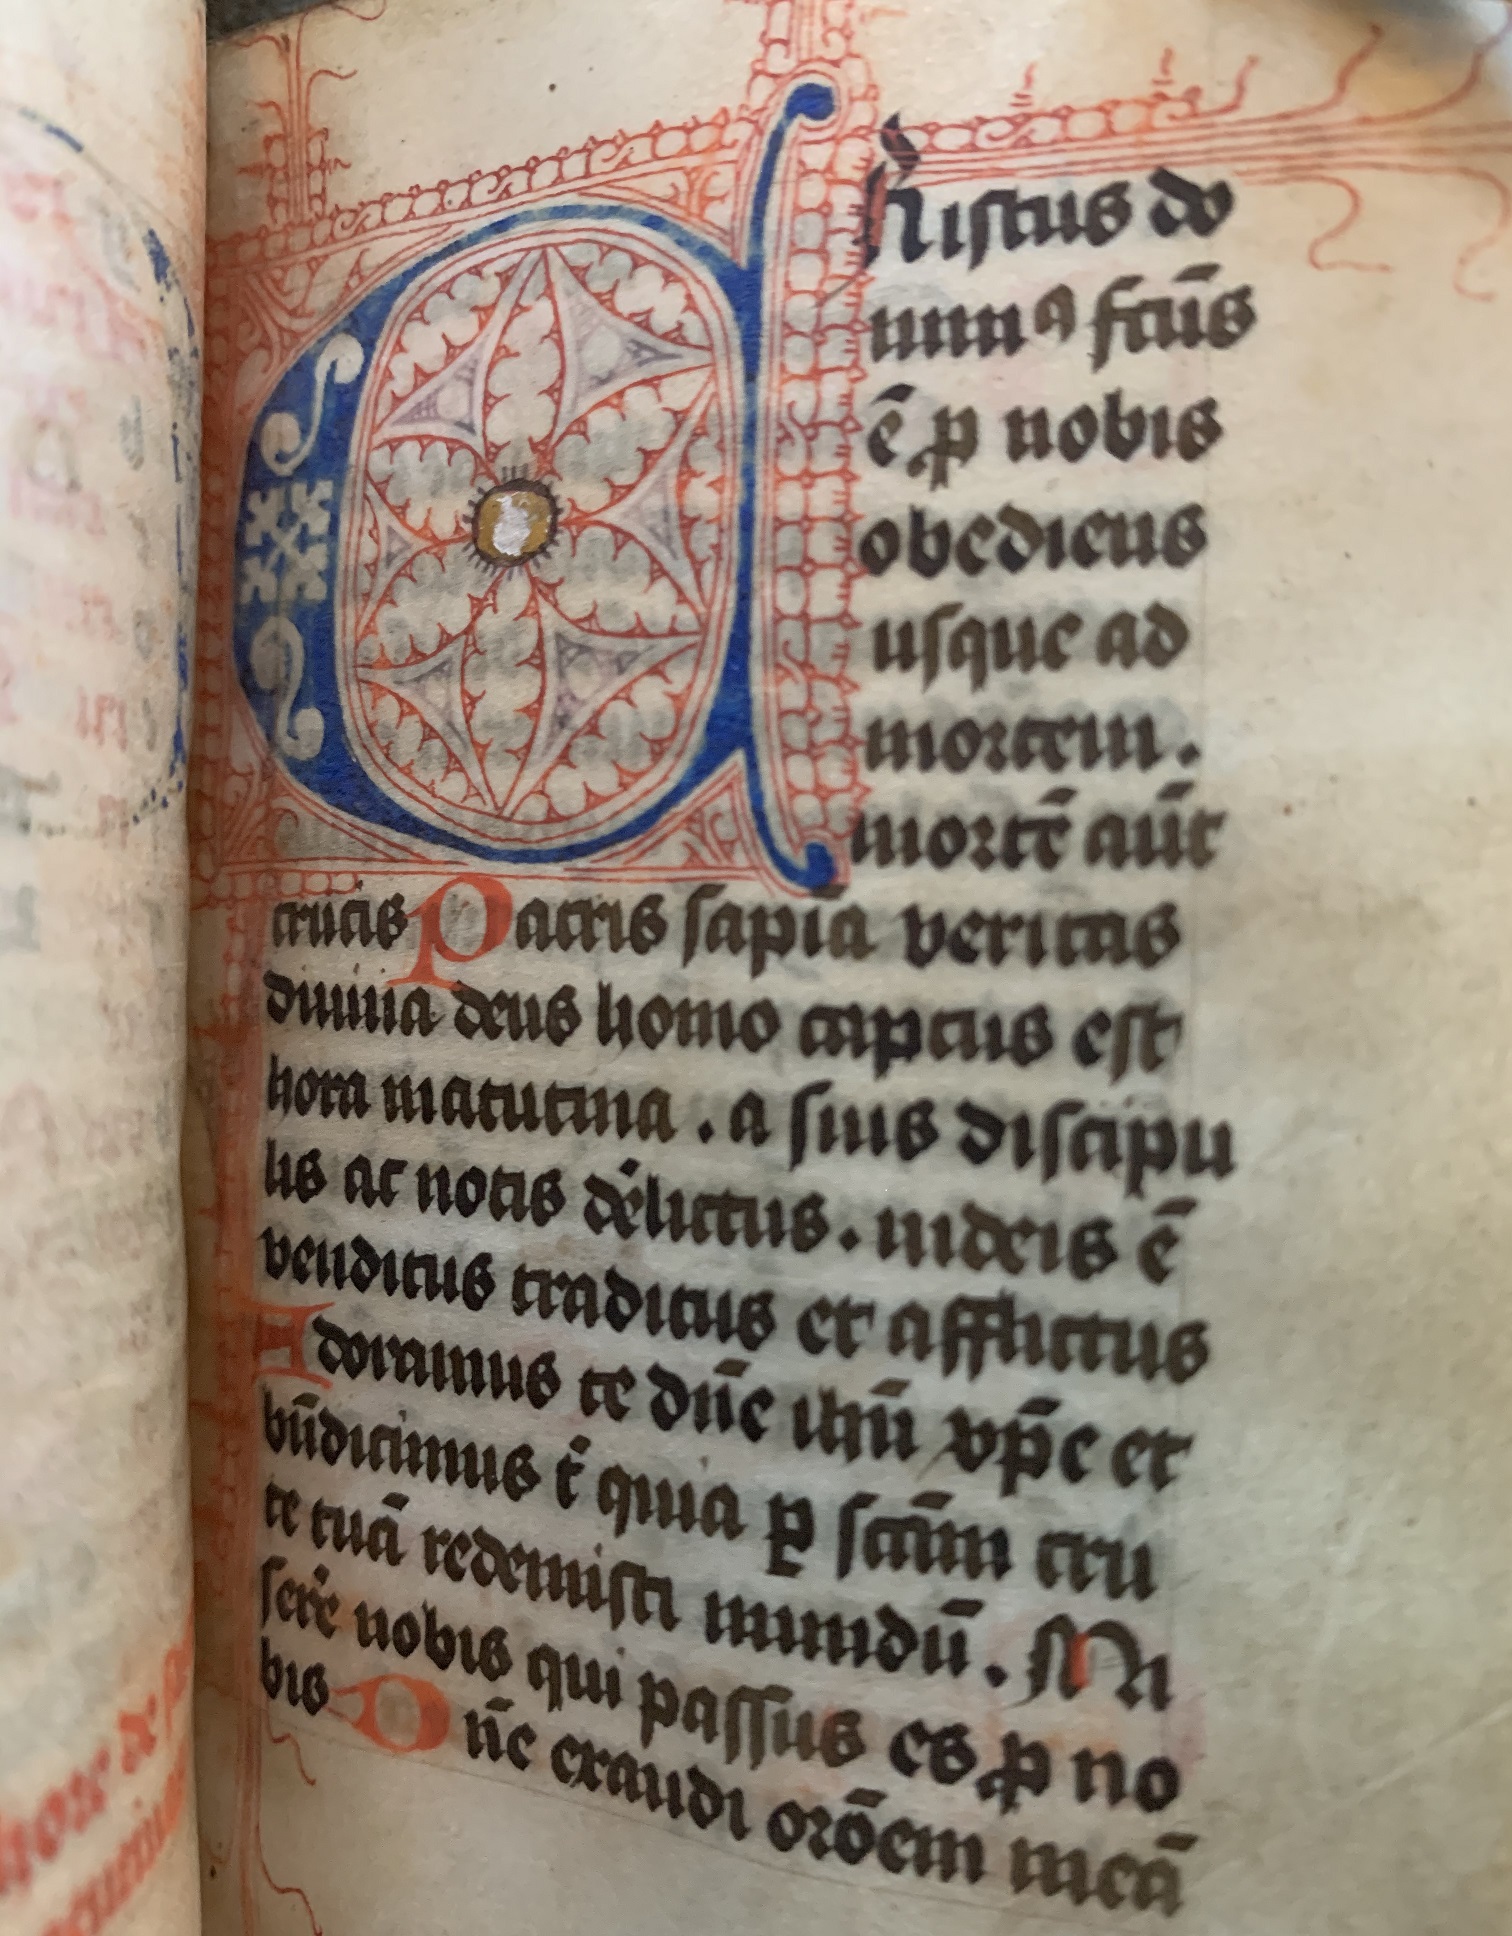 Christus do
minus fc̄us
ē ꝓ nobis
obediens
usque ad
mortem.
mortē aūt
crucis Patris sapīa veritas
diuina deus homo captus est
hora matutina . a suis discipu
lis ac notis derelictus . iudeis ē
venditus traditus et afflictus
Adoramus te dn̄e ihū xp̄e et
bn̄dicimus tͥ quia ꝑ scām cru
ce tuā redemisti mundū . Mi
serere nobis qui passus es ꝓ no
bis Dn̄e exaudi orōem meā